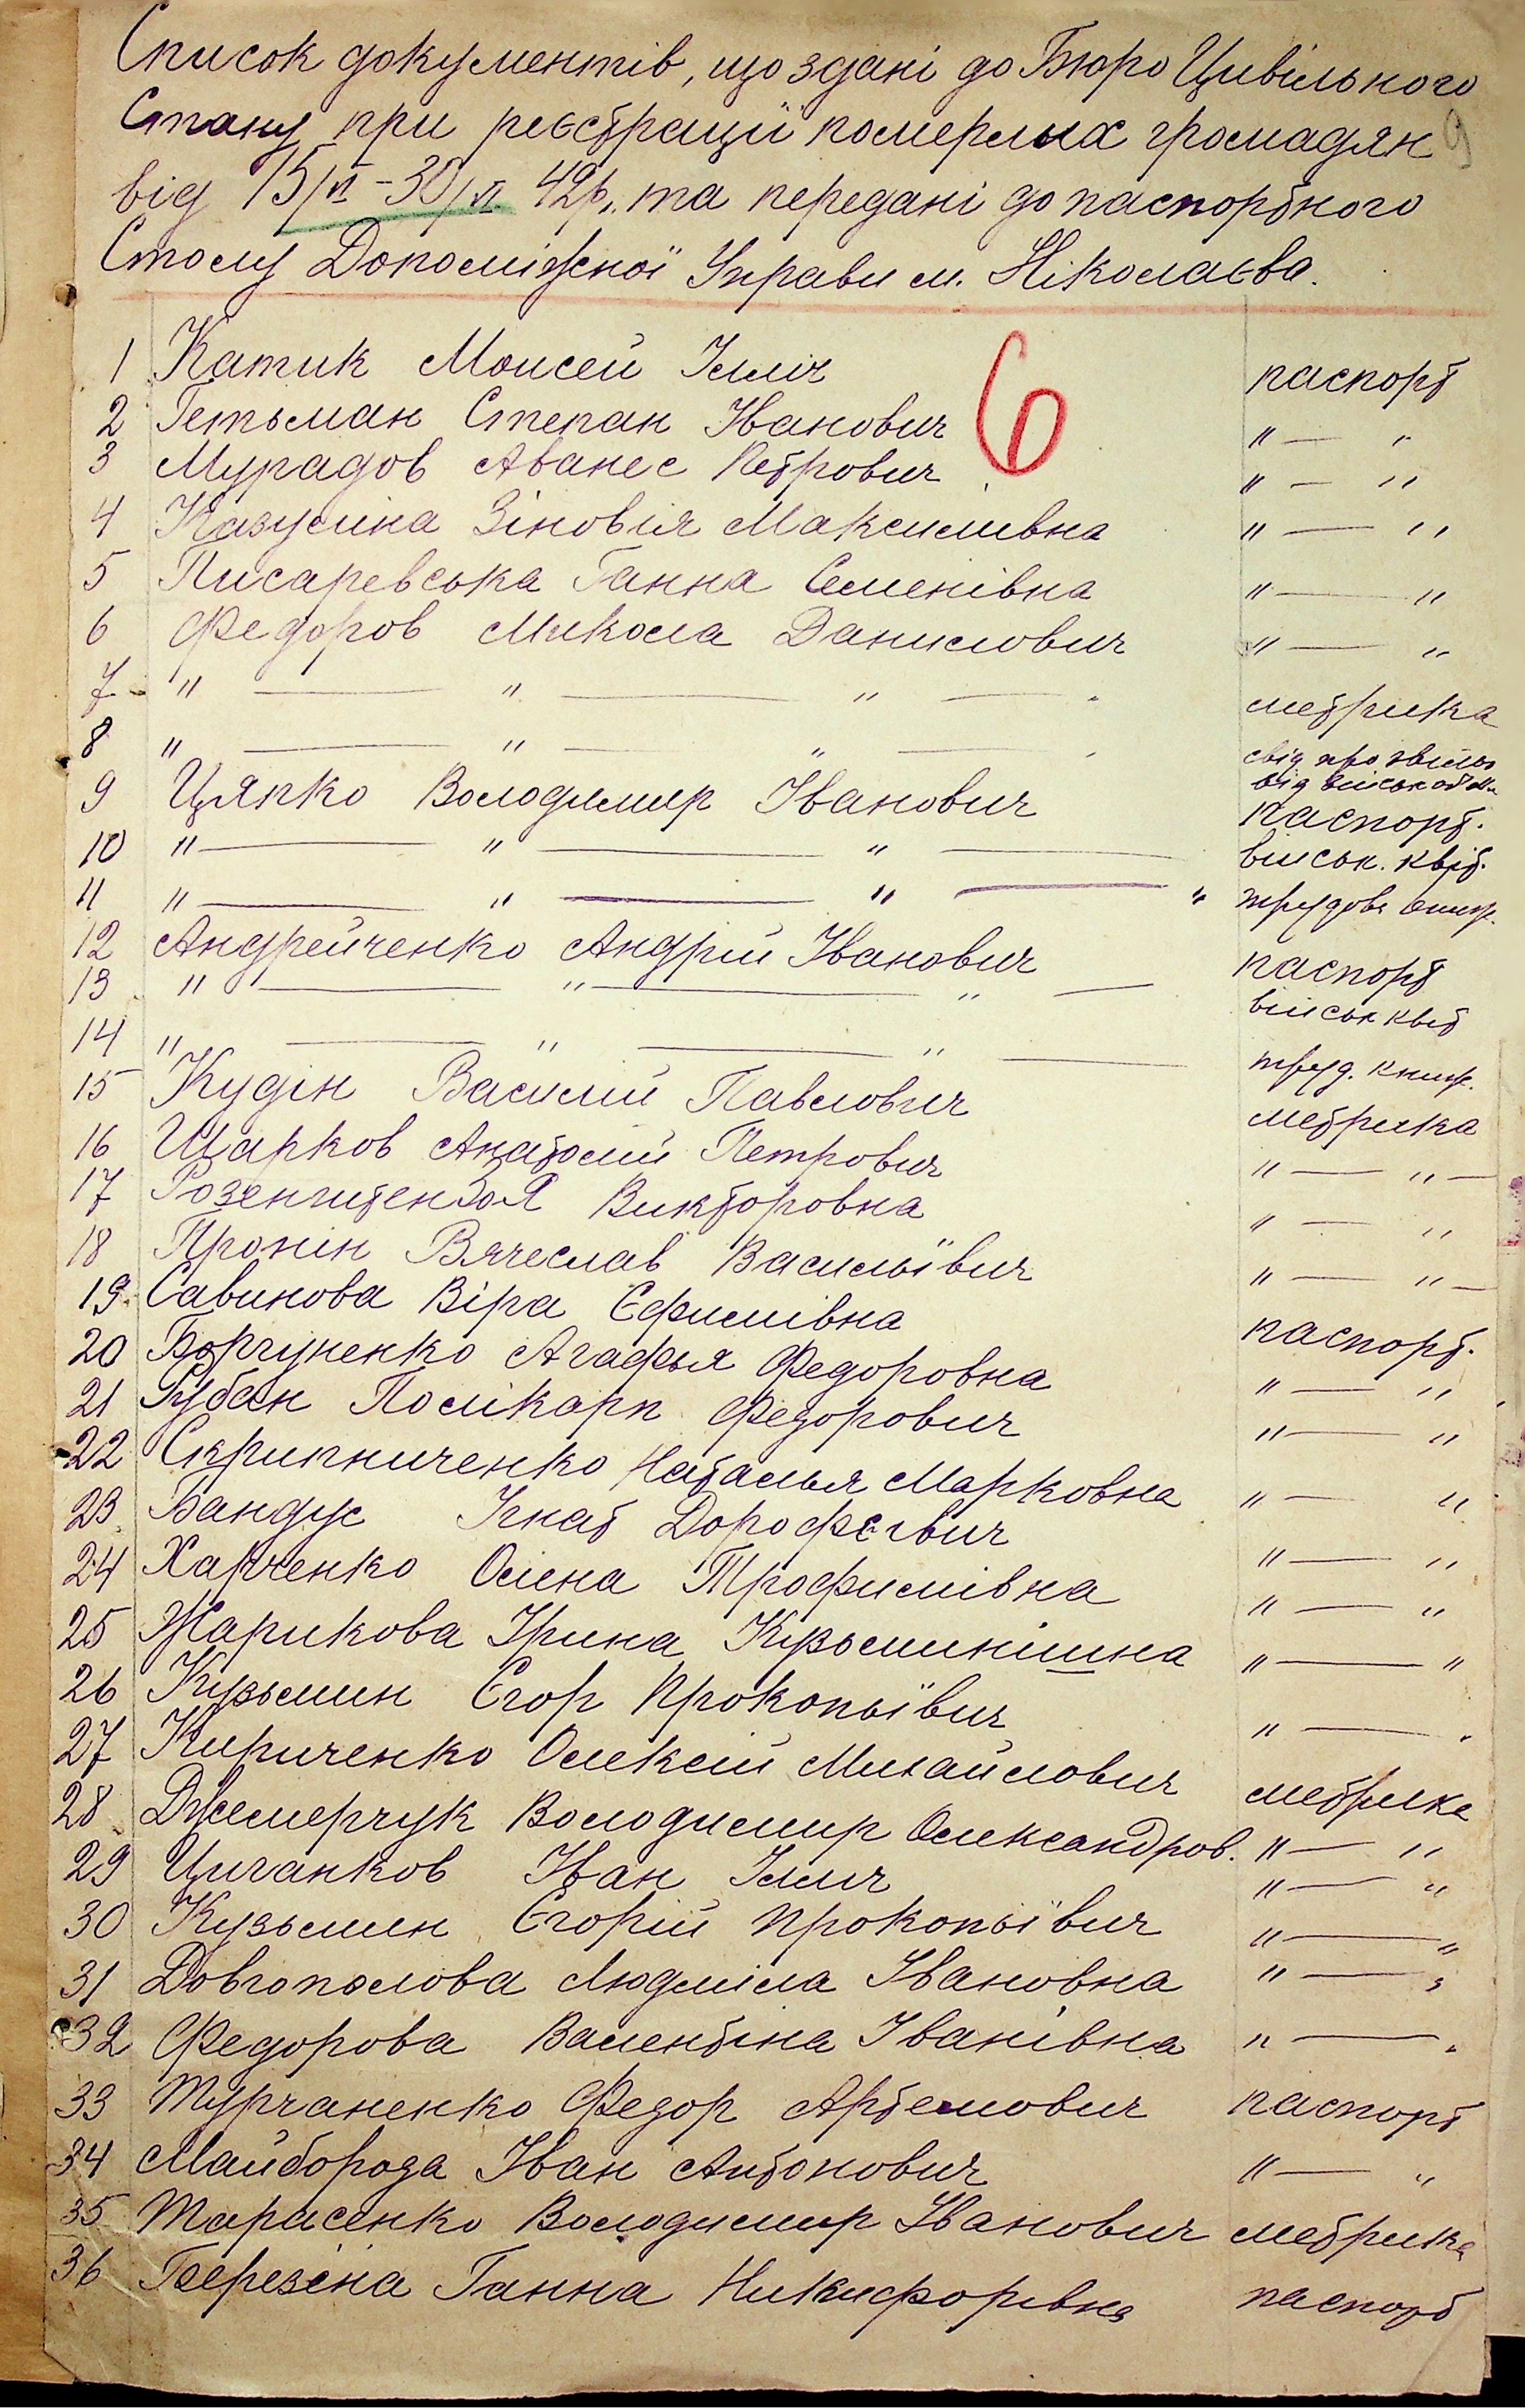 Список документів, що здані до Бюро Цивільного
Стану при реєстрації померлих громадян
від 15/VI - 30/VI. 42р., та передані до паспортного
Столу Допоміжної Управи м. Ніколаєва.
6
1 Катик Моисей Ілліч паспорт
2 Гетьман Степан Іванович " — "
3 Мурадов Аванес Петрович " — "
4 Казуліна Зіновія Максимівна " — "
5 Писаревська Ганна Семенівна " — "
6 Федоров Микола Данилович " — "
7 " — " — " — " метрика
8 " — " — " — " свід про звільн від військ об
9 Цяпко Володимир Іванович паспорт.
10 " — " — " — військ. квіт.
11 " — " — " — " трудова книж.
12 Андрейченко Андрій Іванович паспорт
13 " — " — " — військ квит
14 " — " — " — труд. книж.
15 Кудін Василій Павлович метрика
16 Шарков Анатолій Петрович " — " —
17 Вікторовна " — "
18 Пронін Вячеслав Васильївич " — " —
19. Савинова Віра Єфимівна паспорт.
20 Борчуненко Агафья Федоровна " — "
21 Рубан Полікарп Федорович " — "
22 Скрипниченко Наталья Марковна " — "
23 Бандус Ігнат Дорофєєвич " — "
24 Харченко Олена Трофимівна " — "
25 Жарикова Ірина Кузьминішна " — "
26 Кузьмин Єгор Прокопьївич " — "
27 Кириченко Олексій Михайлович метрика
28 Джемерчук Володимир Олександров. " — "
29 Циганков Іван Ілліч " — "
30 Кузьмин Єгорій Прокопьївич " — "
31 Довгополова Людміла Івановна " — "
32 Федорова Валентіна Іванівна " — "
33 Турчаненко Федор Артемович паспорт
34 Майборода Іван Антонович " — "
35 Тарасенко Володимир Іванович метрика
36 Березіна Ганна Никифорівна паспорт